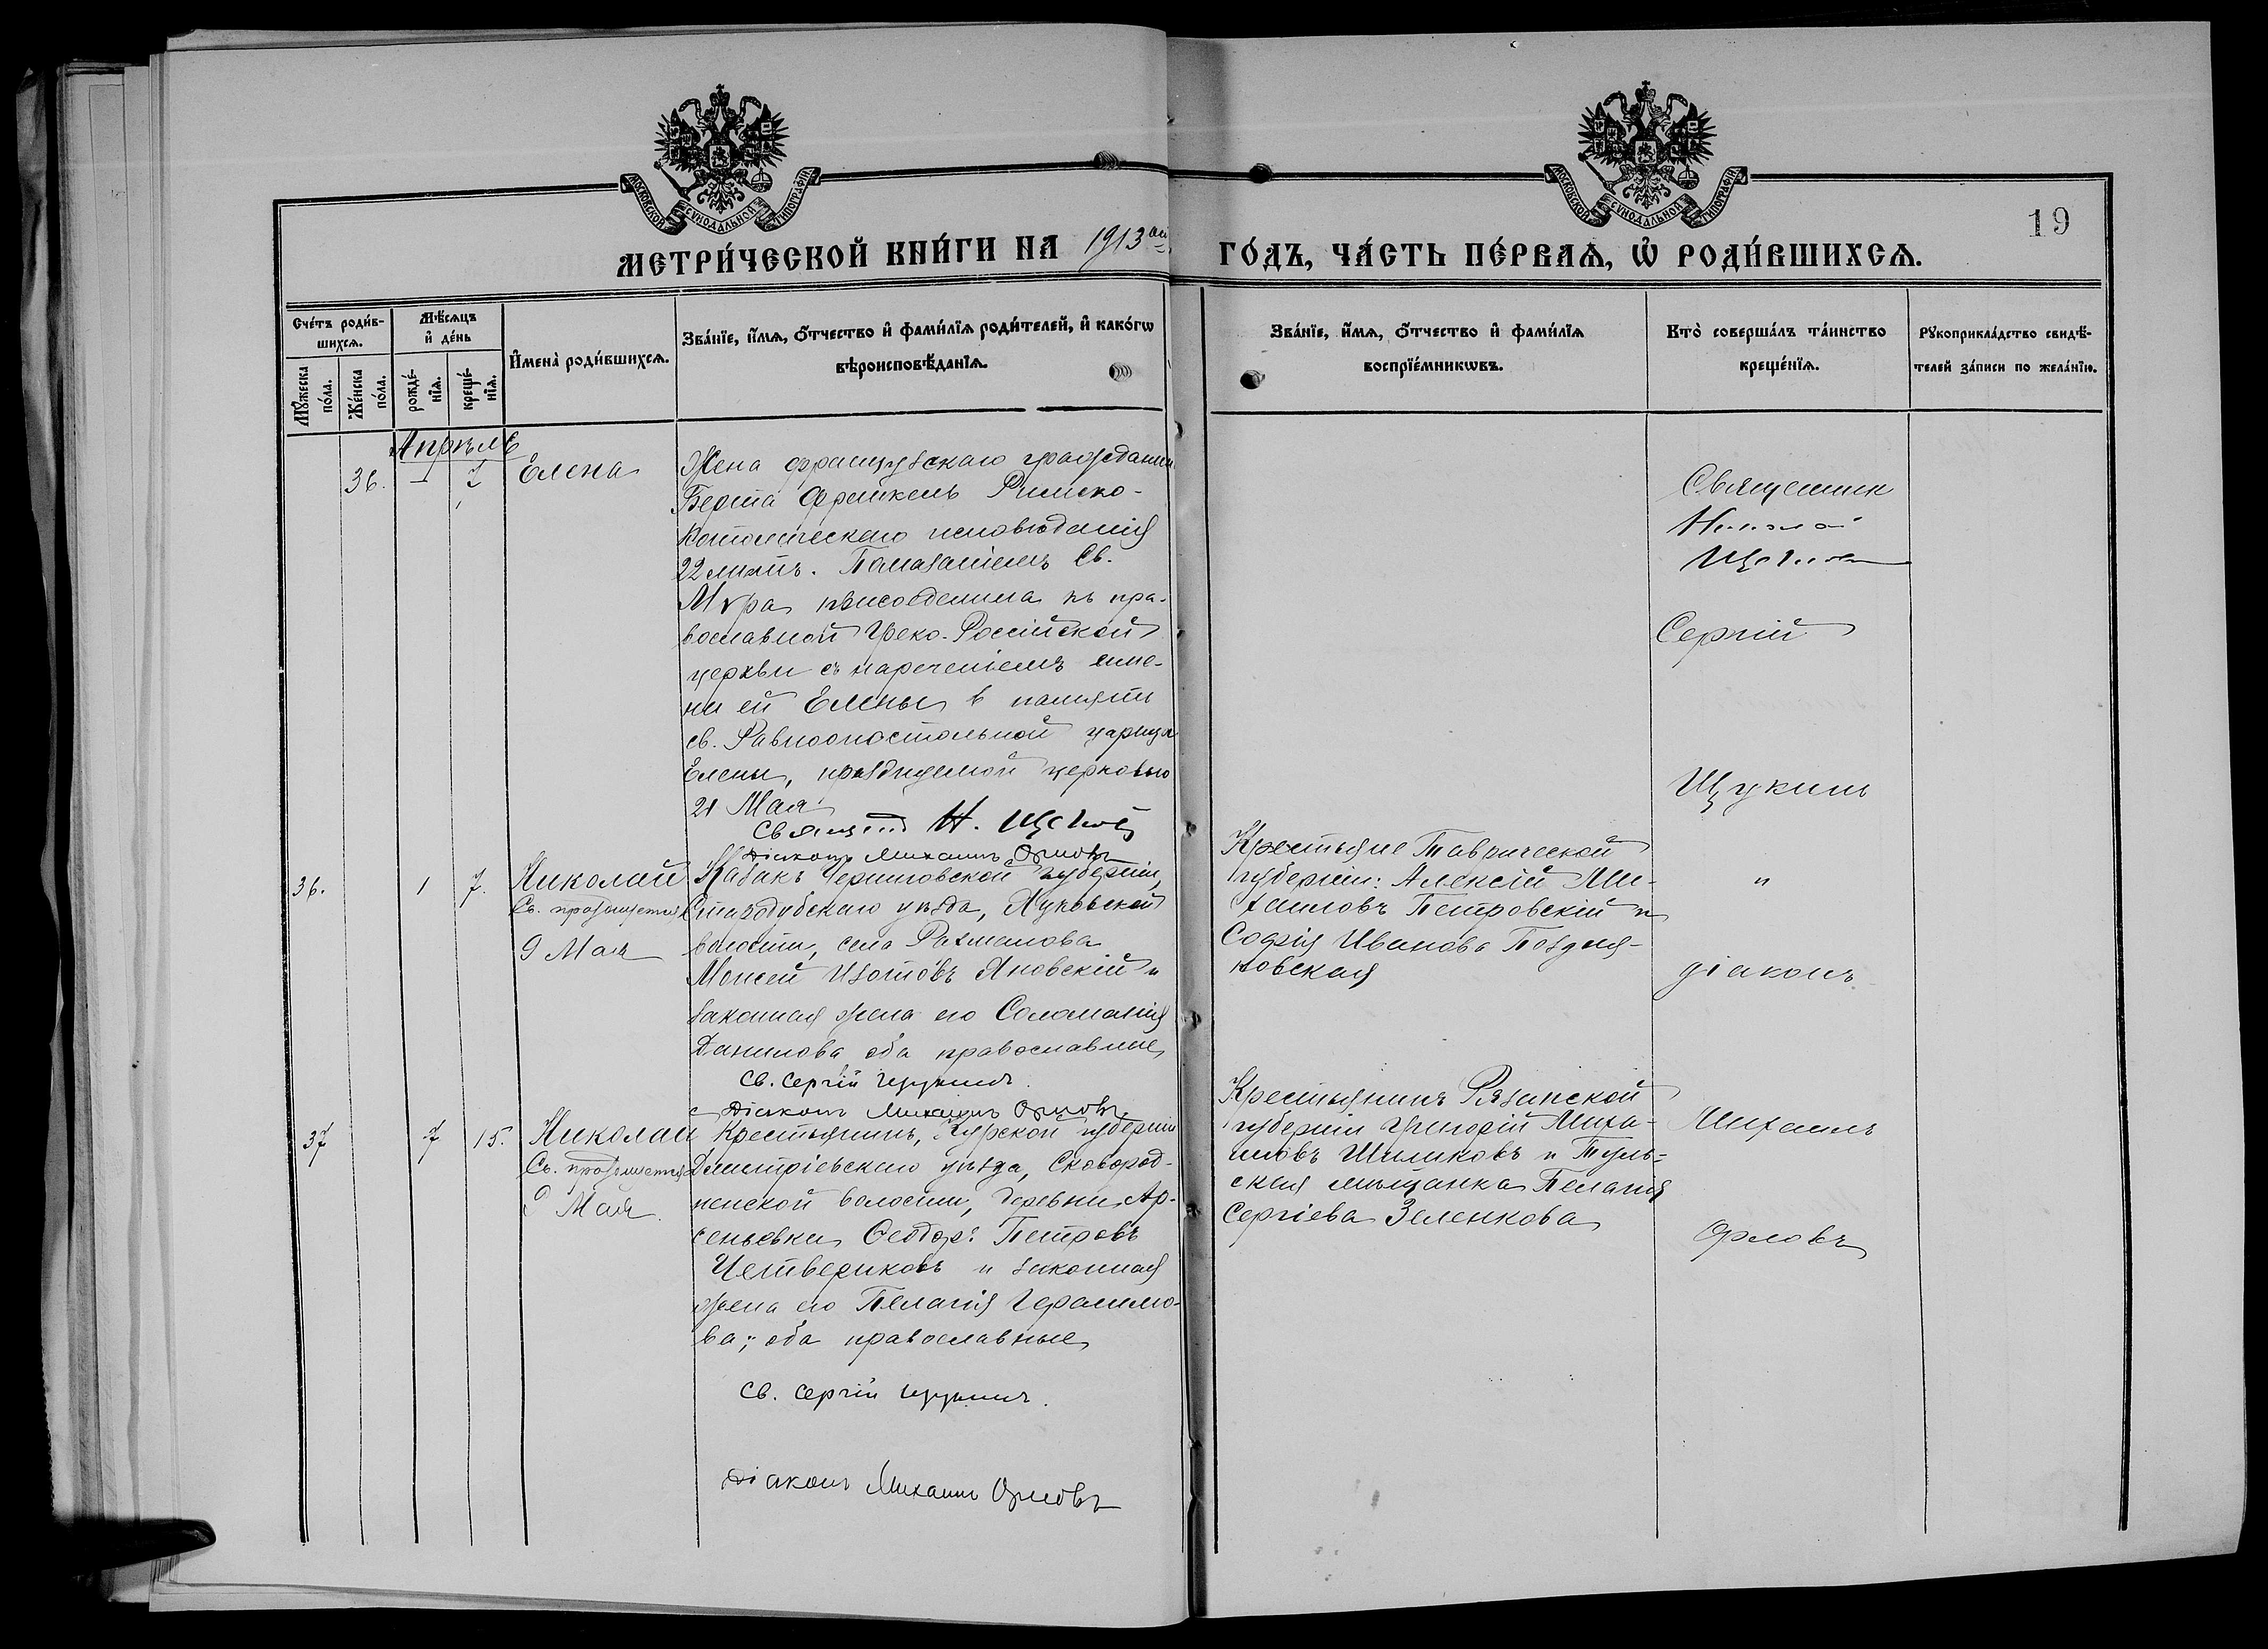 МОСКОВСКОЙ СѴНОДАЛЬНОЙ ТИПОГРАФІИ
МОСКОВСКОЙ СѴНОДАЛЬНОЙ ТИПОГРАФІИ
19
МЕТРИ́ЧЕСКОЙ КНИ́ГИ НА 1913 ый ГО́ДЪ, ЧА́СТЬ ПЕ́РВАѦ, Ѡ РОДИ́ВШИХСѦ.
Сче́тъ роди́в-
шихсѧ.
Мꙋ́жеска по́ла.
Же́нска по́ла.
Мѣ́сѧцъ и де́нь
рожде́-нїѧ.
креще́-нїѧ.
И҆мена̀ роди́вшихсѧ.
Зва́нїе, и҆́мѧ, ѻ҆́тчество и҆ фами́лїѧ роди́телей, и҆ како́гѡ
вѣроисповѣ́данїѧ.
Зва́нїе, и҆́мѧ, ѻ҆́тчество и҆ фами́лїѧ
воспрїе́мникѡвъ.
Кто̀ соверша́лъ та́инство
креще́нїѧ.
Рꙋкоприкла́дство свидѣ́-
телей за́писи по жела́нїю.
Апрѣль
36. 1 7 Елена
Жена французскаго гражданина
Берта Френкель Римско-
Католическаго исповѣданія
22 лѣтъ. Помазаніемъ Св.
Мѵра присоединена къ пра-
вославной Греко-Россійской
церкви съ нареченіемъ име-
ни ей Елены в память
св. Равноапостольной царицы
Елены, празднуемой церковью
21 Мая
Священ Н.
Діаконъ Михаилъ Орловъ
Священник
Николай
Сергій
Щукинъ
36. 1 7. Николай
Св. празднуется
9 Мая
Казакъ Черниговской губерніи,
Стародубскаго уѣзда,
волости, села Рахманова
Моисей Изотовъ Яновскій и
законная жена его Соломанія
Данилова оба православные
Св. Сергій Щукинъ.
Діаконъ Михаилъ Орловъ
Крестьяне Таврической
губерніи: Алексій Ми-
хаиловъ Петровскій и
Софія Иванова Поздня-
ковская
"
діаконъ
37 7 15. Николай
Св. празднуется
9 Мая
Крестьянинъ, Курской губерніи
Дмитріевскаго уѣзда, Сковород-
ненской волости, деревни Ар-
сеньевки Ѳеодоръ Петровъ
Четвериковъ и законная
жена его Пелагія Герасимо-
ва; оба православные
Св. Сергій Щукинъ.
Діаконъ Михаилъ Орловъ
Крестьянинъ Рязанской
губерніи Григорій Миха-
иловъ Шиликовъ и Туль-
ская мѣщанка Пелагія
Сергіева Зеленкова
Михаилъ
Орловъ